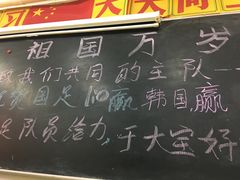 天天向
祖国万岁
致我们共同的主队——
国足1:0赢韩国,赢
队员给力,于大宝好